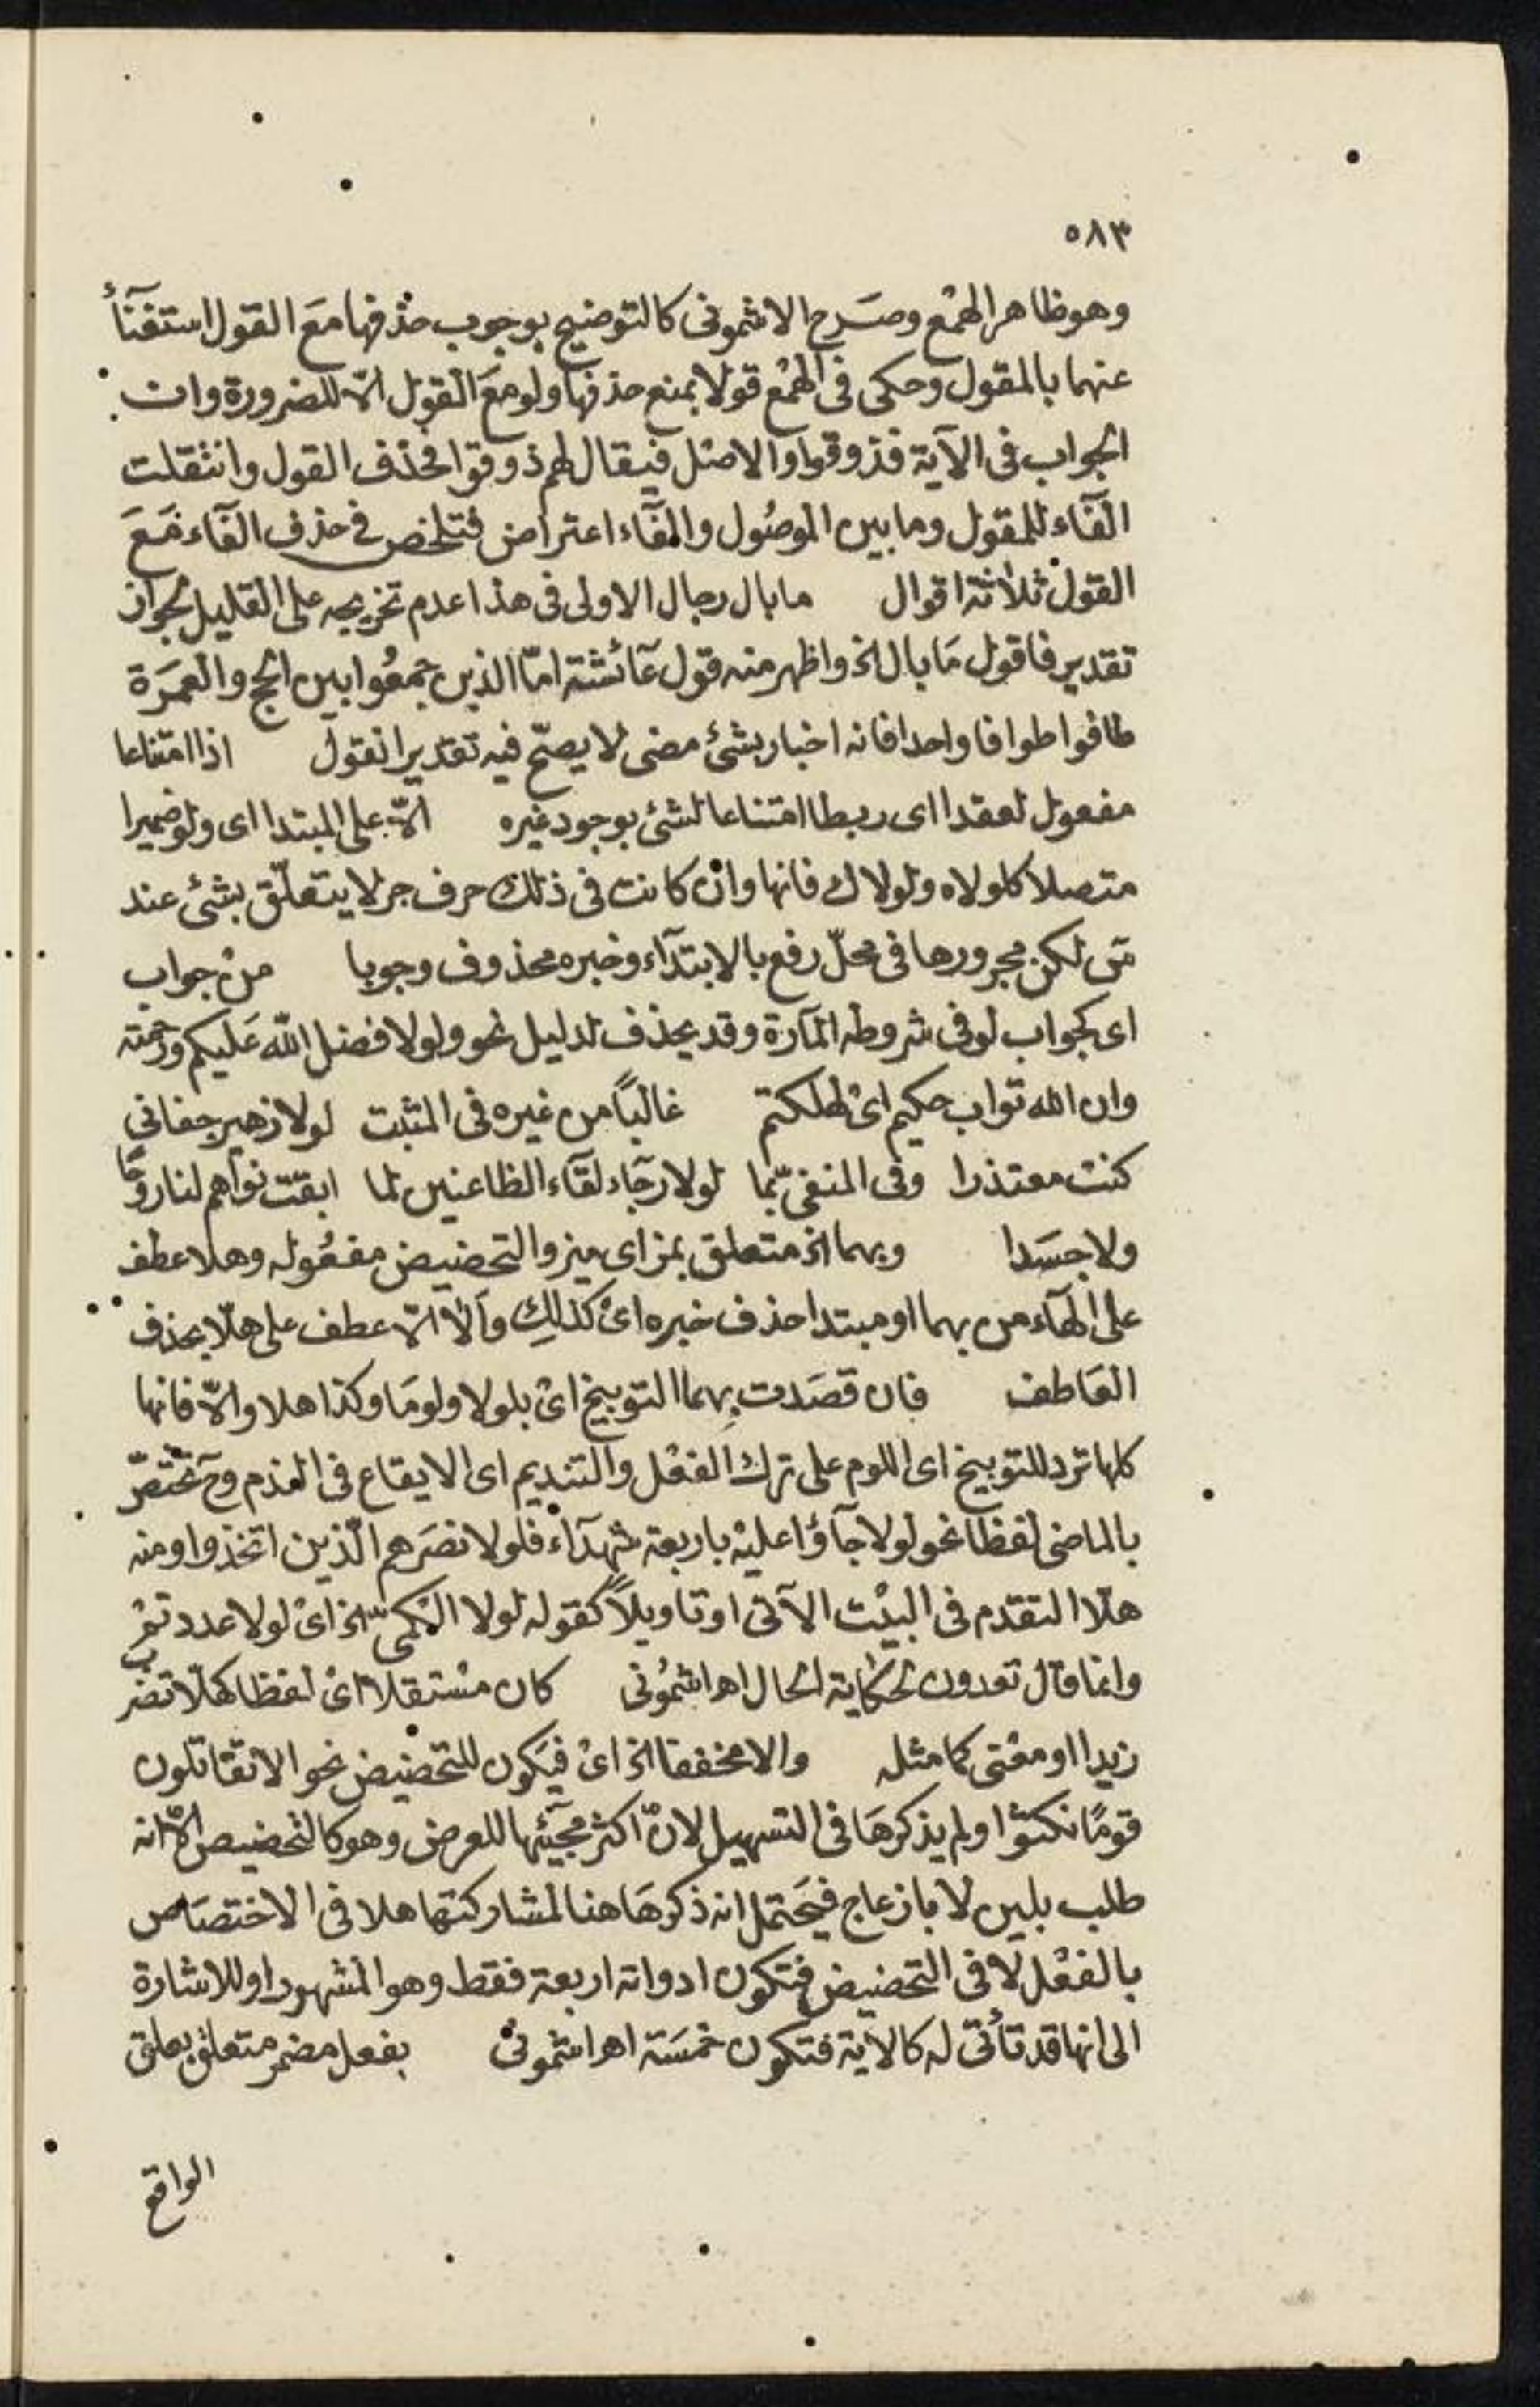 ٥٨٣
وهو ظاهر الهمْع وصَرح الاشمونى كالتوضيح بوجوب حذفها معَ القول استغنآءً
عنهما بالمقول وحكى فى الهمْع قولا بمنع حذفها ولو معَ القول الّا للضرورة وان
الجواب فى الآية فذوقوا والاصْل فيقال لهم ذوقوا فحُذف القول وانتقلت
الفآء للمقول وما بين الموصُول والفآء اعتراض فتلخص فى حذف الفآء مَعَ
القول ثلاثة اقوال ما بال رجال الاولى فى هذا عدم تخريجه على القليل لجواز
تقدير فاقول مَا بال الخ واظهر منه قول عَآئشة امّا الذين جمعُوا بين الحج والعمَرة
طافوا طوافا واحدا فانه اخبار بشئ مضى لا يصحّ فيه تقدير القول اذا امتناعا
مفعول لعقدا اى ربطا امتناعا لشئ بوجود غيره الّا على المبتدا اى ولو ضميرا
متصلا كلولاه ولولاك فانها وان كانت فى ذلك حرف جر لا يتعلّق بشئ عند
سَ لكن مجرورها فى محلّ رفع بالابتدآء وخبره محذوف وجوبا منْ جواب
اى كجواب لو فى شروطه المآرة وقد يحذف لدليل نحو ولولا فضل الله عَليكم ورحمته
وان الله تواب حكيم اىْ لهلكتم غالباً من غيره فى المثبت لولا زهير جفانى
كنت معتذرا وفى المنفىّ بما لولا رجآء لقآء الظاعنين لما ابقتْ نواهم لنا روحًا
ولا جسَدا وبهما الخ متعلق بمز اى ميز والتحضيض مفعُوله وهلا عطف
على الهآء من بهما او مبتدا حذف خبره اىْ كذلك وألّا الّا عطف على هلّا بحذف
العَاطف فان قصَدت بِهما التوبيخ اىْ بلولا ولومَا وكذا هلا والّا فانها
كلها ترد للتوبيخ اى اللوم على ترك الفعْل والتنديم اى الايقاع فى الندم وحَ تختصّ
بالماضى لفظا نحو لولا جآؤا عليْه باربعة شهدآء فلولا نصَرهم الّذين اتخذوا ومنه
هلّا التقدم فى البيْت الآتى او تاويلاً كقوله لولا الكمىّ الخ اىْ لولا عددتمْ
وانما قال تعدون لحكاية الحال اهـ اشمُونى كان مسْتقلا اىْ لفظا كهلّا تضرب
زيدا او معْنى كما مثله والا مخففا الخ اىْ فيَكون للتحْضيض نحو الا تقاتلون
قومًا نكثوا ولم يذكرهَا فى التسهيل لانّ اكثرَ مجَيئها للعرض وهو كالتحْضيض الّا انه
طلب بلين لا بازعاج فيحَتمل انه ذكرهَا هنا لمشاركتها هلا فى الاختصَاص
بالفعْل لا فى التحضيض فتكون ادواته اربعة فقط وهو المشهور او للاشارة
الى انها قد تأتى له كالآية فتكون خمسَة اهـ اشمونى بفعل مضمر متعلق بعلق
الواقع